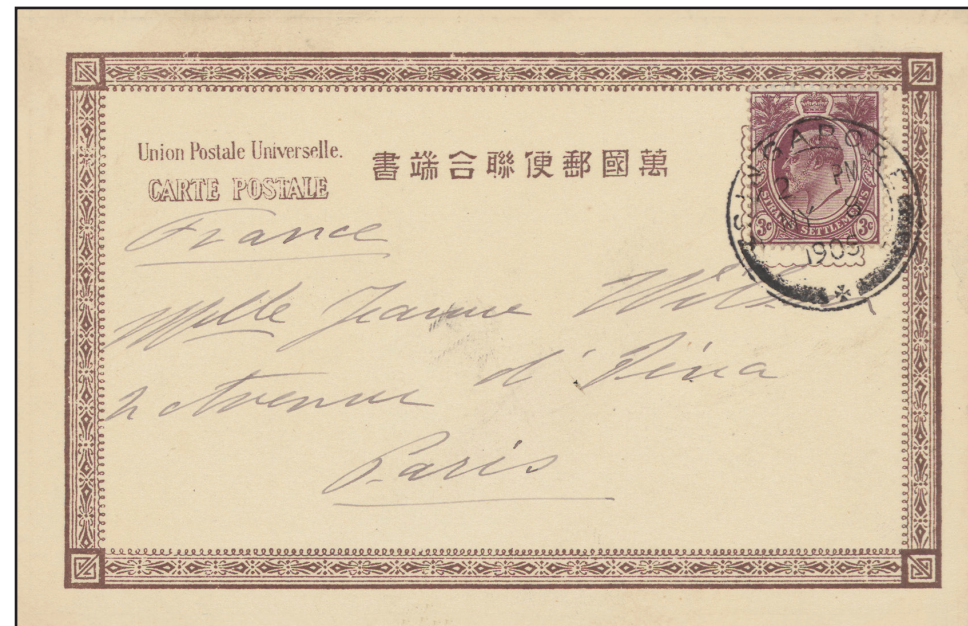 Union Postale Universelle.
CARTE POSTALE
書端合聯便郵國萬
SINGAPORE
2 PM
MY 8
1905
STRAITS SETTLEMENTS
3c 3c
France
Mlle Jeanne
2 Avenue d'Iéna
Paris